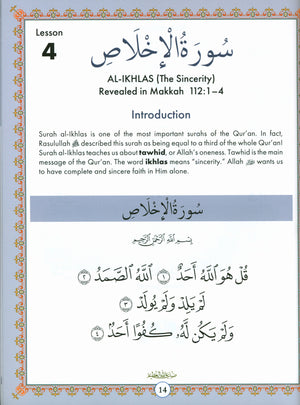 Lesson
4
سُورَةُ الْإِخْلَاصِ
AL-IKHLAS (The Sincerity)
Revealed in Makkah 112:1–4
Introduction
Surah al-Ikhlas is one of the most important surahs of the Qur'an. In fact,
Rasulullah ﷺ described this surah as being equal to a third of the whole Qur'an!
Surah al-Ikhlas teaches us about tawhid, or Allah's oneness. Tawhid is the main
message of the Qur'an. The word ikhlas means "sincerity." Allah wants us
to have complete and sincere faith in Him alone.
سُورَةُ الْإِخْلَاصِ
بِسْمِ اللَّهِ الرَّحْمَٰنِ الرَّحِيمِ
قُلْ هُوَ اللَّهُ أَحَدٌ ١ اللَّهُ الصَّمَدُ ٢
لَمْ يَلِدْ وَلَمْ يُولَدْ ٣
وَلَمْ يَكُن لَّهُ كُفُوًا أَحَدٌ ٤
14